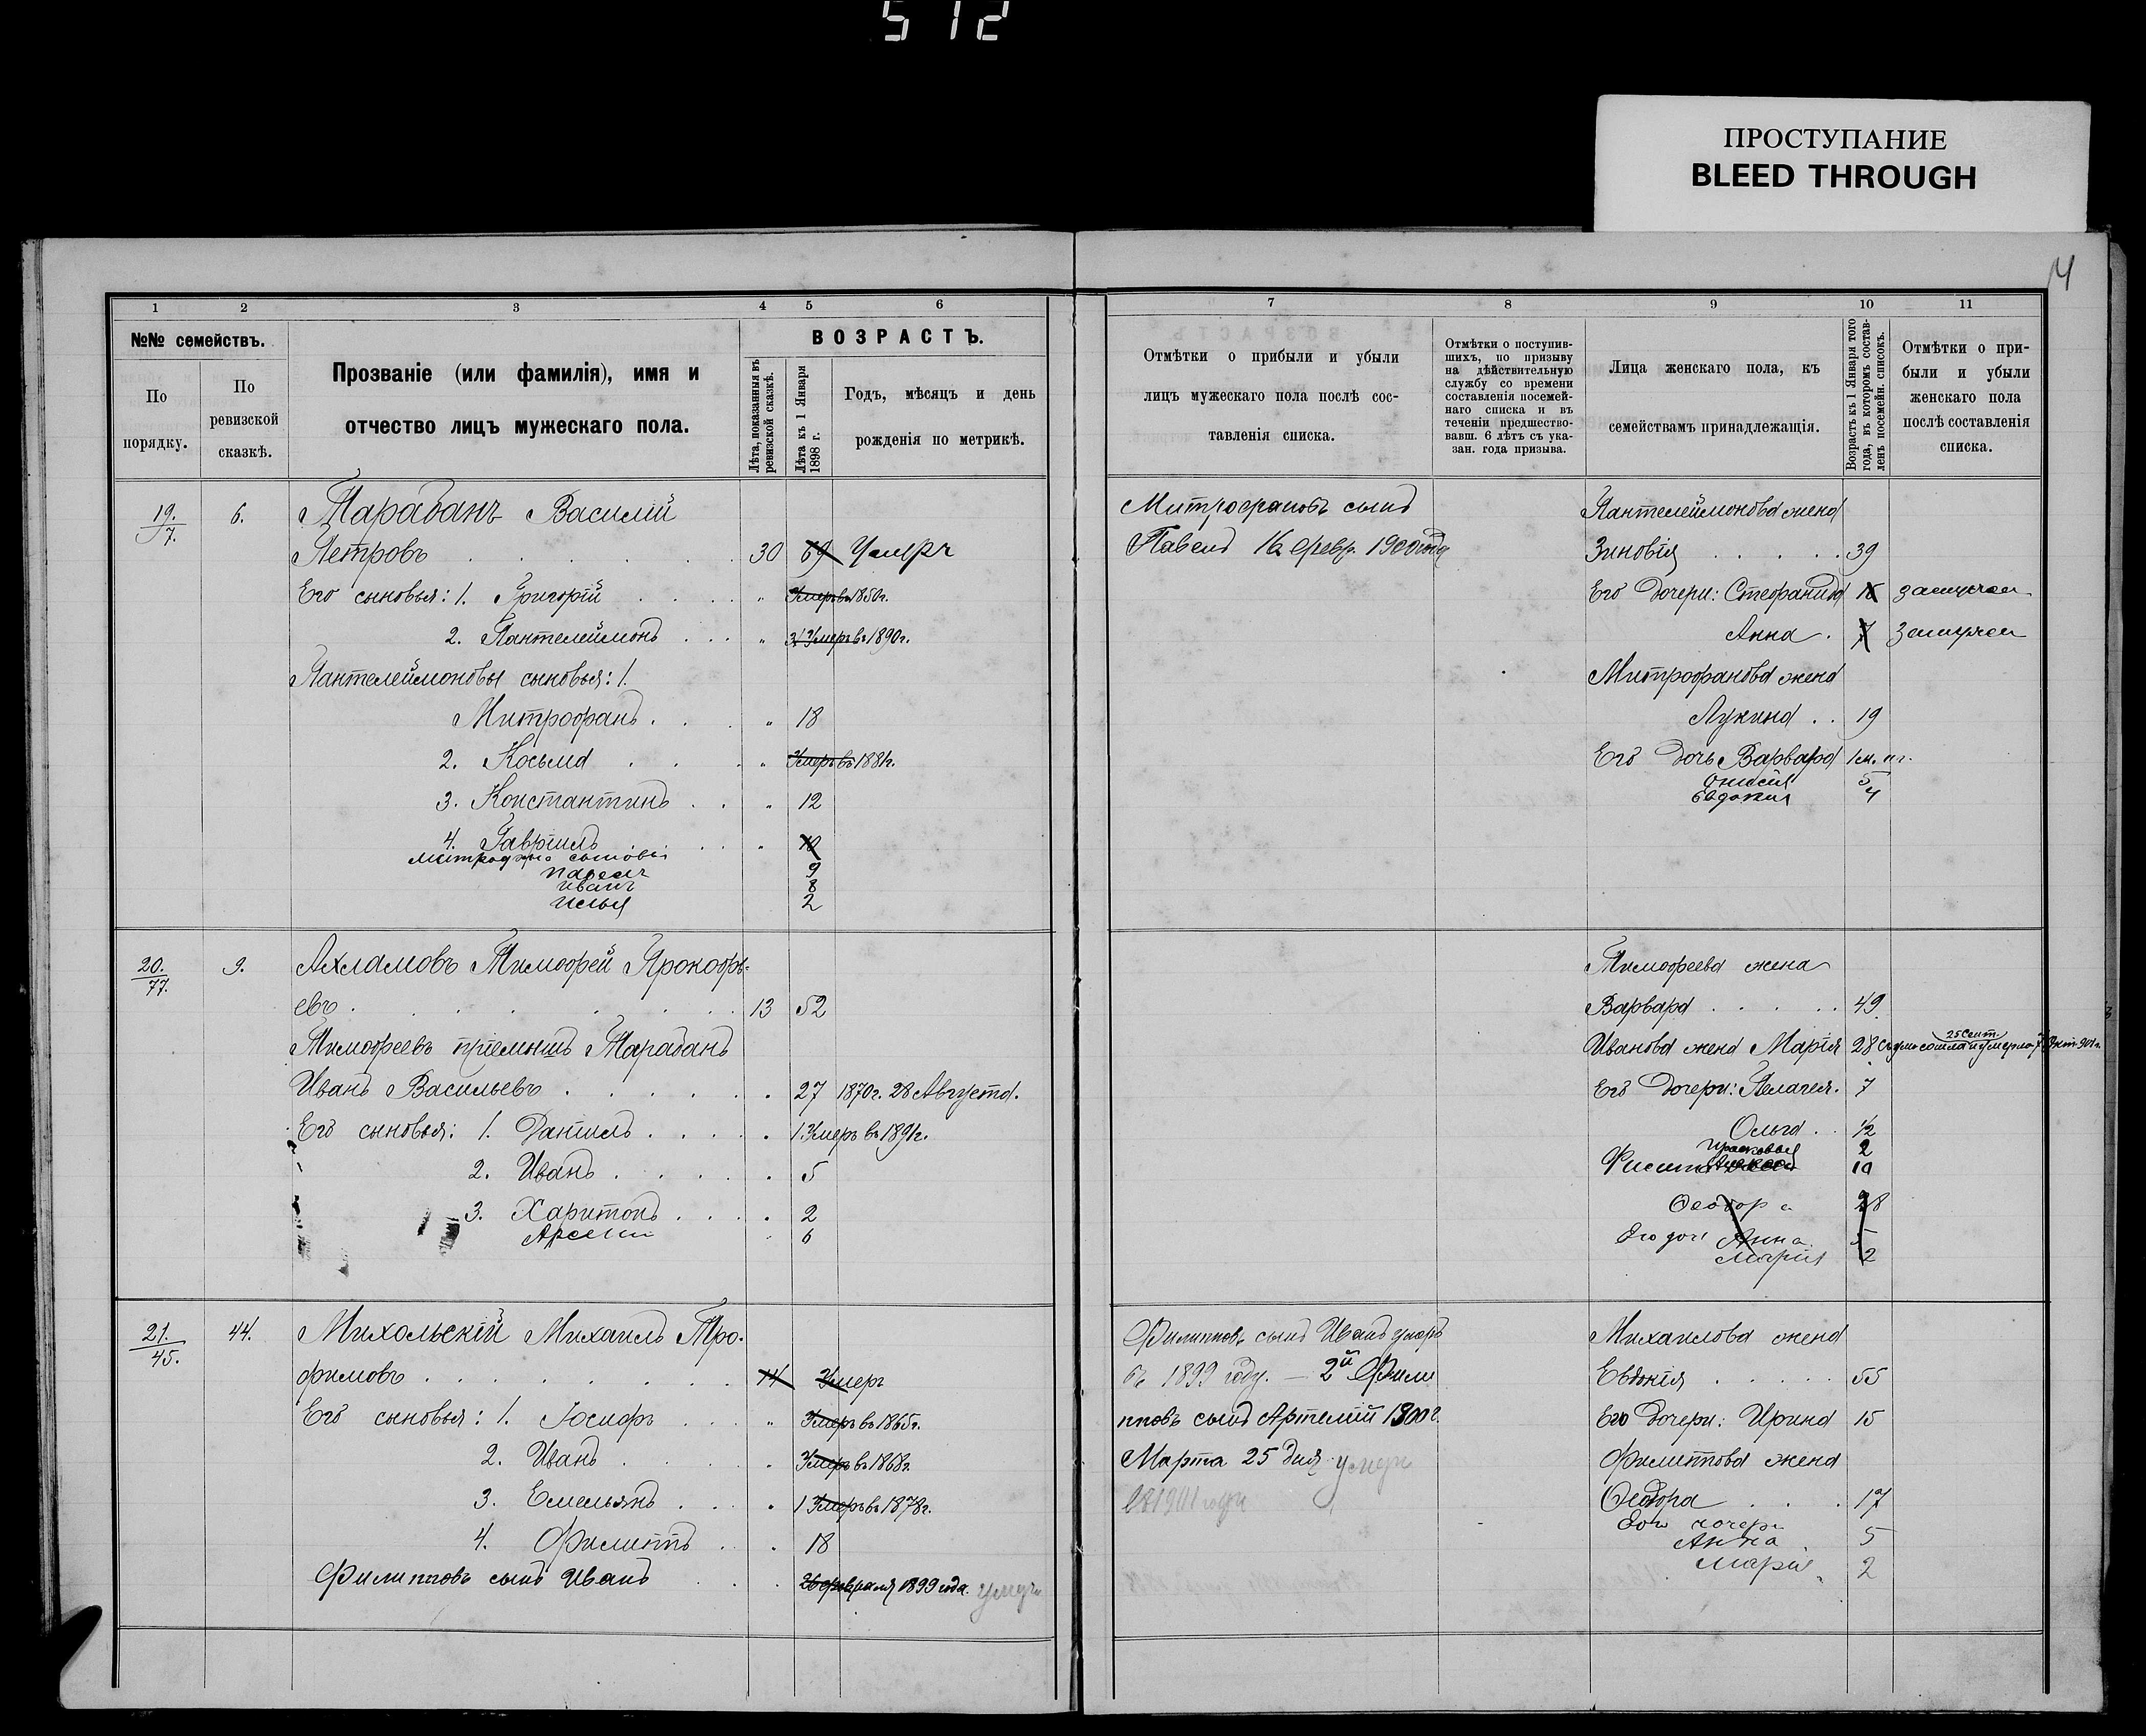 512
ПРОСТУПАНИЕ
BLEED THROUGH
14
1 2 3 4 5 6
№№ семействъ.
По порядку.
По ревизской сказкѣ.
Прозваніе (или фамилія), имя и
отчество лицъ мужескаго пола.
ВОЗРАСТЪ.
Лѣта, показанныя въ
ревизской сказкѣ.
Лѣта къ 1 Января
1898 г.
Годъ, мѣсяцъ и день
рожденія по метрикѣ.
19. 6. Тарабанъ Василій
7.
Петровъ 30 69 Умеръ
Его сыновья: 1. Григорій " Умеръ въ 1850г.
2. Пантелеймонъ " Умеръ въ 1890г.
Пантелеймоновы сыновья: 1.
Митрофанъ " 18
2. Косьма " Умеръ въ 1881г.
3. Константинъ " 12
4. Гавріилъ " 10
сыновья
Павелъ 9
Иванъ 8
Илья 2
20. 9. Ахламовъ Тимофей Прокофь-
77.
евъ 13 52
Тимофеевъ пріемышъ Тарабанъ
Иванъ Васильевъ 27 1870г. 28 Августа.
Его сыновья: 1. Даніилъ 1 Умеръ въ 1891г.
2. Иванъ 5
3. Харитонъ 2
Арсеній 6
21. 44. Михольскій Михаилъ Тро-
45.
фимовъ 14 Умеръ
Его сыновья: 1. Іосифъ " Умеръ въ 1865г.
2. Иванъ Умеръ въ 1868г.
3. Емельянъ 1 Умеръ въ 1878г.
4. Филиппъ 18
Филипповъ сынъ Иванъ 26 февраля 1899 года. умеръ
7 8 9 10 11
Отмѣтки о прибыли и убыли
лицъ мужескаго пола послѣ сос-
тавленія списка.
Отмѣтки о поступив-
шихъ, по призыву
на дѣйствительную
службу со времени
составленія посемей-
наго списка и въ
теченіи предшество-
вавш. 6 лѣтъ съ ука-
зан. года призыва.
Лица женскаго пола, къ
семействамъ принадлежащія.
Возрастъ къ 1 Января того
года, въ которомъ состав-
ленъ посемейн. списокъ.
Отмѣтки о при-
были и убыли
женскаго пола
послѣ составленія
списка.
Митрофановъ сынъ
Павелъ 16 февр. 1900 года
Пантелеймонова жена
Зиновія 39
Его дочери: Стефанида замужем
Анна 7 замужем
Митрофанова жена
Лукина 19
Его дочь Варвара
5
Евдокия 4
Тимофеева жена
Варвара 49
Иванова жена Марія 28 25 Сент.
Его дочери: Пелагея. 7
Ольга 1/2
Прасковья 2
10
Феодора 28
Его доч Анна 5
Мария 2
Филипповъ сынъ Иванъ умеръ
въ 1899 году. — 2й Фили
пповъ сынъ Артемій 1900 г.
Марта 25 дня умеръ
въ 1901 году
Михаилова жена
Евдокія 55
Его дочери: Ирина 15
Филиппова жена
Феодора 17
Его дочери
Анна 5
Марія 2